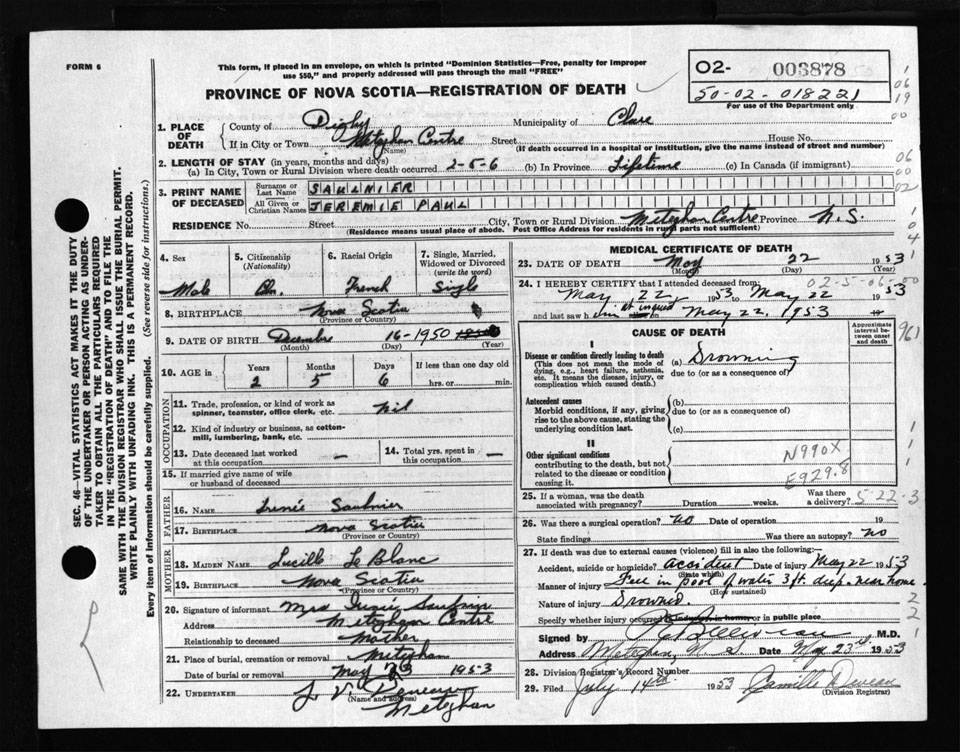 FORM 6
This form, if placed in an envelope, on which is printed "Dominion Statistics—Free, penalty for improper
use $50," and properly addressed will pass through the mail "FREE"
O2- 003878
50-02-018221
For use of the Department only
PROVINCE OF NOVA SCOTIA—REGISTRATION OF DEATH
1. PLACE OF DEATH County of Digby Municipality of Clare
If in City or Town Meteghan Centre Street House No.
(Name) (If death occurred in a hospital or institution, give the name instead of street and number)
2. LENGTH OF STAY (in years, months and days)
(a) In City, Town or Rural Division where death occurred 2-5-6 (b) In Province Lifetime (c) In Canada (if immigrant)
3. PRINT NAME OF DECEASED Surname or Last Name SAULNIER
All Given or Christian Names JEREMIE PAUL
RESIDENCE No. Street City, Town or Rural Division Meteghan Centre Province N.S.
(Residence means usual place of abode. Post Office Address for residents in rural parts not sufficient)
4. Sex Male
5. Citizenship (Nationality) Cdn.
6. Racial Origin French
7. Single, Married, Widowed or Divorced (write the word) Single
8. BIRTHPLACE Nova Scotia
(Province or Country)
9. DATE OF BIRTH Decembre 16-1950
(Month) (Day) (Year)
10. AGE in Years Months Days If less than one day old
2 5 6 hrs. or min.
OCCUPATION
11. Trade, profession, or kind of work as spinner, teamster, office clerk, etc. nil
12. Kind of industry or business, as cotton-mill, lumbering, bank, etc.
13. Date deceased last worked at this occupation —
14. Total yrs. spent in this occupation —
15. If married give name of wife or husband of deceased
FATHER
16. NAME Irenée Saulnier
17. BIRTHPLACE Nova Scotia
(Province or Country)
MOTHER
18. MAIDEN NAME Lucille LeBlanc
19. BIRTHPLACE Nova Scotia
(Province or Country)
20. Signature of informant Mrs Irenée Saulnier
Address Meteghan Centre
Relationship to deceased Mother
21. Place of burial, cremation or removal Meteghan
Date of burial or removal May 23 1953
22. UNDERTAKER L. V. Deveau
(Name and address) Meteghan
MEDICAL CERTIFICATE OF DEATH
23. DATE OF DEATH May 22 1953
(Month) (Day) (Year)
24. I HEREBY CERTIFY that I attended deceased from: 02-5-06-00
May 22 1953 to May 22 1953
and last saw him at inquest on May 22, 1953
CAUSE OF DEATH
Approximate interval between onset and death
I
Disease or condition directly leading to death
(This does not mean the mode of dying, e.g., heart failure, asthenia, etc. It means the disease, injury, or complication which caused death.)
(a) Drowning
due to (or as a consequence of)
Antecedent causes
Morbid conditions, if any, giving rise to the above cause, stating the underlying condition last.
(b)
due to (or as a consequence of)
(c)
II
Other significant conditions
contributing to the death, but not related to the disease or condition causing it.
N990X
E929.8
961
25. If a woman, was the death associated with pregnancy? Duration weeks. Was there a delivery? 5-22-3
26. Was there a surgical operation? no Date of operation 19
State findings Was there an autopsy? no
27. If death was due to external causes (violence) fill in also the following:—
Accident, suicide or homicide? accident Date of injury May 22 1953
(State which)
Manner of injury Fell in pool of water 3 ft. deep near home.
(How sustained)
Nature of injury Drowned.
Specify whether injury occurred in industry, in home, or in public place
Signed by M.D.
Address Meteghan, N. S. Date May 23rd 1953
28. Division Registrar's Record Number
29. Filed July 14th 1953 Camille Deveau
(Division Registrar)
SEC. 46—VITAL STATISTICS ACT MAKES IT THE DUTY
OF THE UNDERTAKER OR PERSON ACTING AS UNDER-
TAKER TO OBTAIN ALL THE PARTICULARS REQUIRED
IN THE "REGISTRATION OF DEATH" AND TO FILE THE
SAME WITH THE DIVISION REGISTRAR WHO SHALL ISSUE THE BURIAL PERMIT.
WRITE PLAINLY WITH UNFADING INK. THIS IS A PERMANENT RECORD.
Every item of information should be carefully supplied. (See reverse side for instructions.)